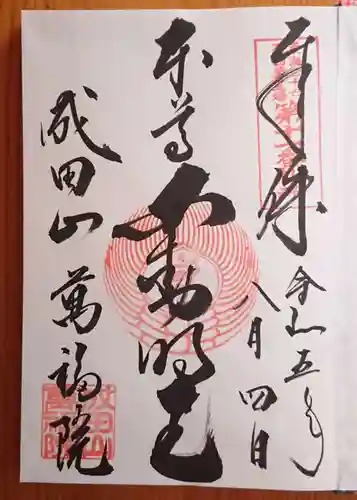 奉拝
令和五年
八月四日
本尊
不動明王
成田山
萬福院